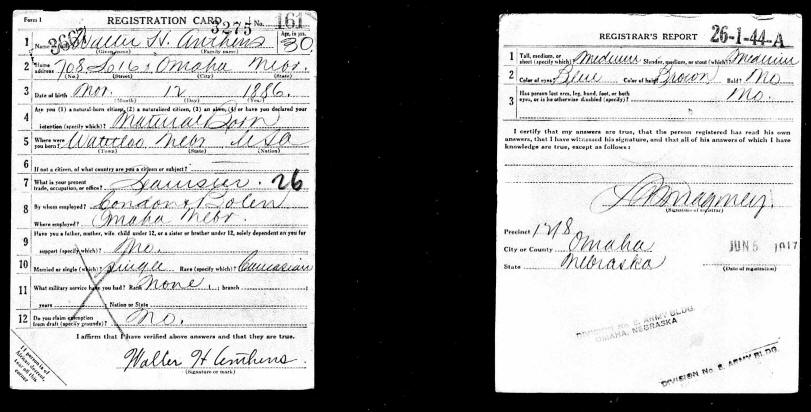 Form 1
REGISTRATION CARD
3275
No. 161
3667
Age, in yrs.
1 Name Walter H. Anthens 30
(Given name) (Family name)
2 Home address 708 So 16 St Omaha Nebr.
(No.) (Street) (City) (State)
3 Date of birth Nov. 12 1886.
(Month) (Day) (Year)
4 Are you (1) a natural-born citizen, (2) a naturalized citizen, (3) an alien, (4) or have you declared your
intention (specify which)? Natural Born
5 Where were you born? Waterloo Nebr USA
(Town) (State) (Nation)
6 If not a citizen, of what country are you a citizen or subject?
7 What is your present trade, occupation, or office? 26
8 By whom employed? Condon & Bolen
Where employed? Omaha Nebr.
9 Have you a father, mother, wife, child under 12, or a sister or brother under 12, solely dependent on you for
support (specify which)? No.
10 Married or single (which)? Single Race (specify which)? Caucasian
11 What military service have you had? Rank None ; branch
years Nation or State
12 Do you claim exemption from draft (specify grounds)? No.
I affirm that I have verified above answers and that they are true.
Walter H Anthens.
(Signature or mark)
If person is of African descent, tear off this corner
REGISTRAR'S REPORT 26-1-44-A
1 Tall, medium, or short (specify which)? Medium Slender, medium, or stout (which)? Medium
2 Color of eyes? Blue Color of hair? Brown Bald? No
3 Has person lost arm, leg, hand, foot, or both
eyes, or is he otherwise disabled (specify)? No.
I certify that my answers are true, that the person registered has read his own
answers, that I have witnessed his signature, and that all of his answers of which I have
knowledge are true, except as follows:
Montgomery
(Signature of registrar)
Precinct
City or County Omaha
JUN 5 1917
State Nebraska
(Date of registration)
DIVISION No 2, ARMY BLDG.
OMAHA, NEBRASKA
DIVISION No 2, ARMY BLDG.